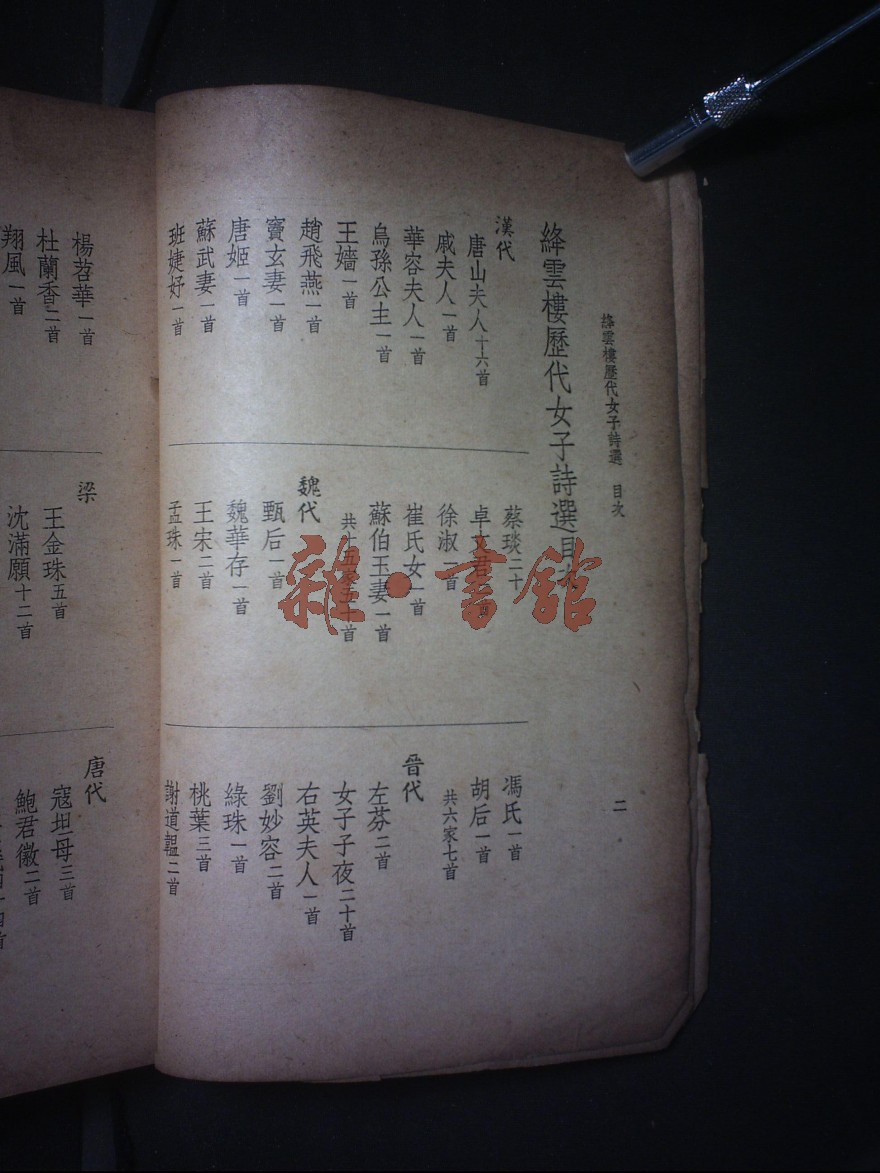 絳雲樓歷代女子詩選 目次
二
絳雲樓歷代女子詩選目次
漢代
唐山夫人十六首
戚夫人一首
華容夫人一首
烏孫公主一首
王嬙一首
趙飛燕一首
竇玄妻一首
唐姬一首
蘇武妻一首
班婕妤一首
蔡琰二十
卓文君
徐淑一首
崔氏女一首
蘇伯玉妻一首
魏代
甄后一首
魏華存一首
王宋二首
孟珠一首
馮氏一首
胡后一首
共六家七首
晉代
左芬二首
女子子夜二十首
右英夫人一首
劉妙容二首
綠珠一首
桃葉三首
謝道韞二首
楊苕華一首
杜蘭香二首
翔風一首
梁
王金珠五首
沈滿願十二首
唐代
寇坦母三首
鮑君徽二首
雜·書館